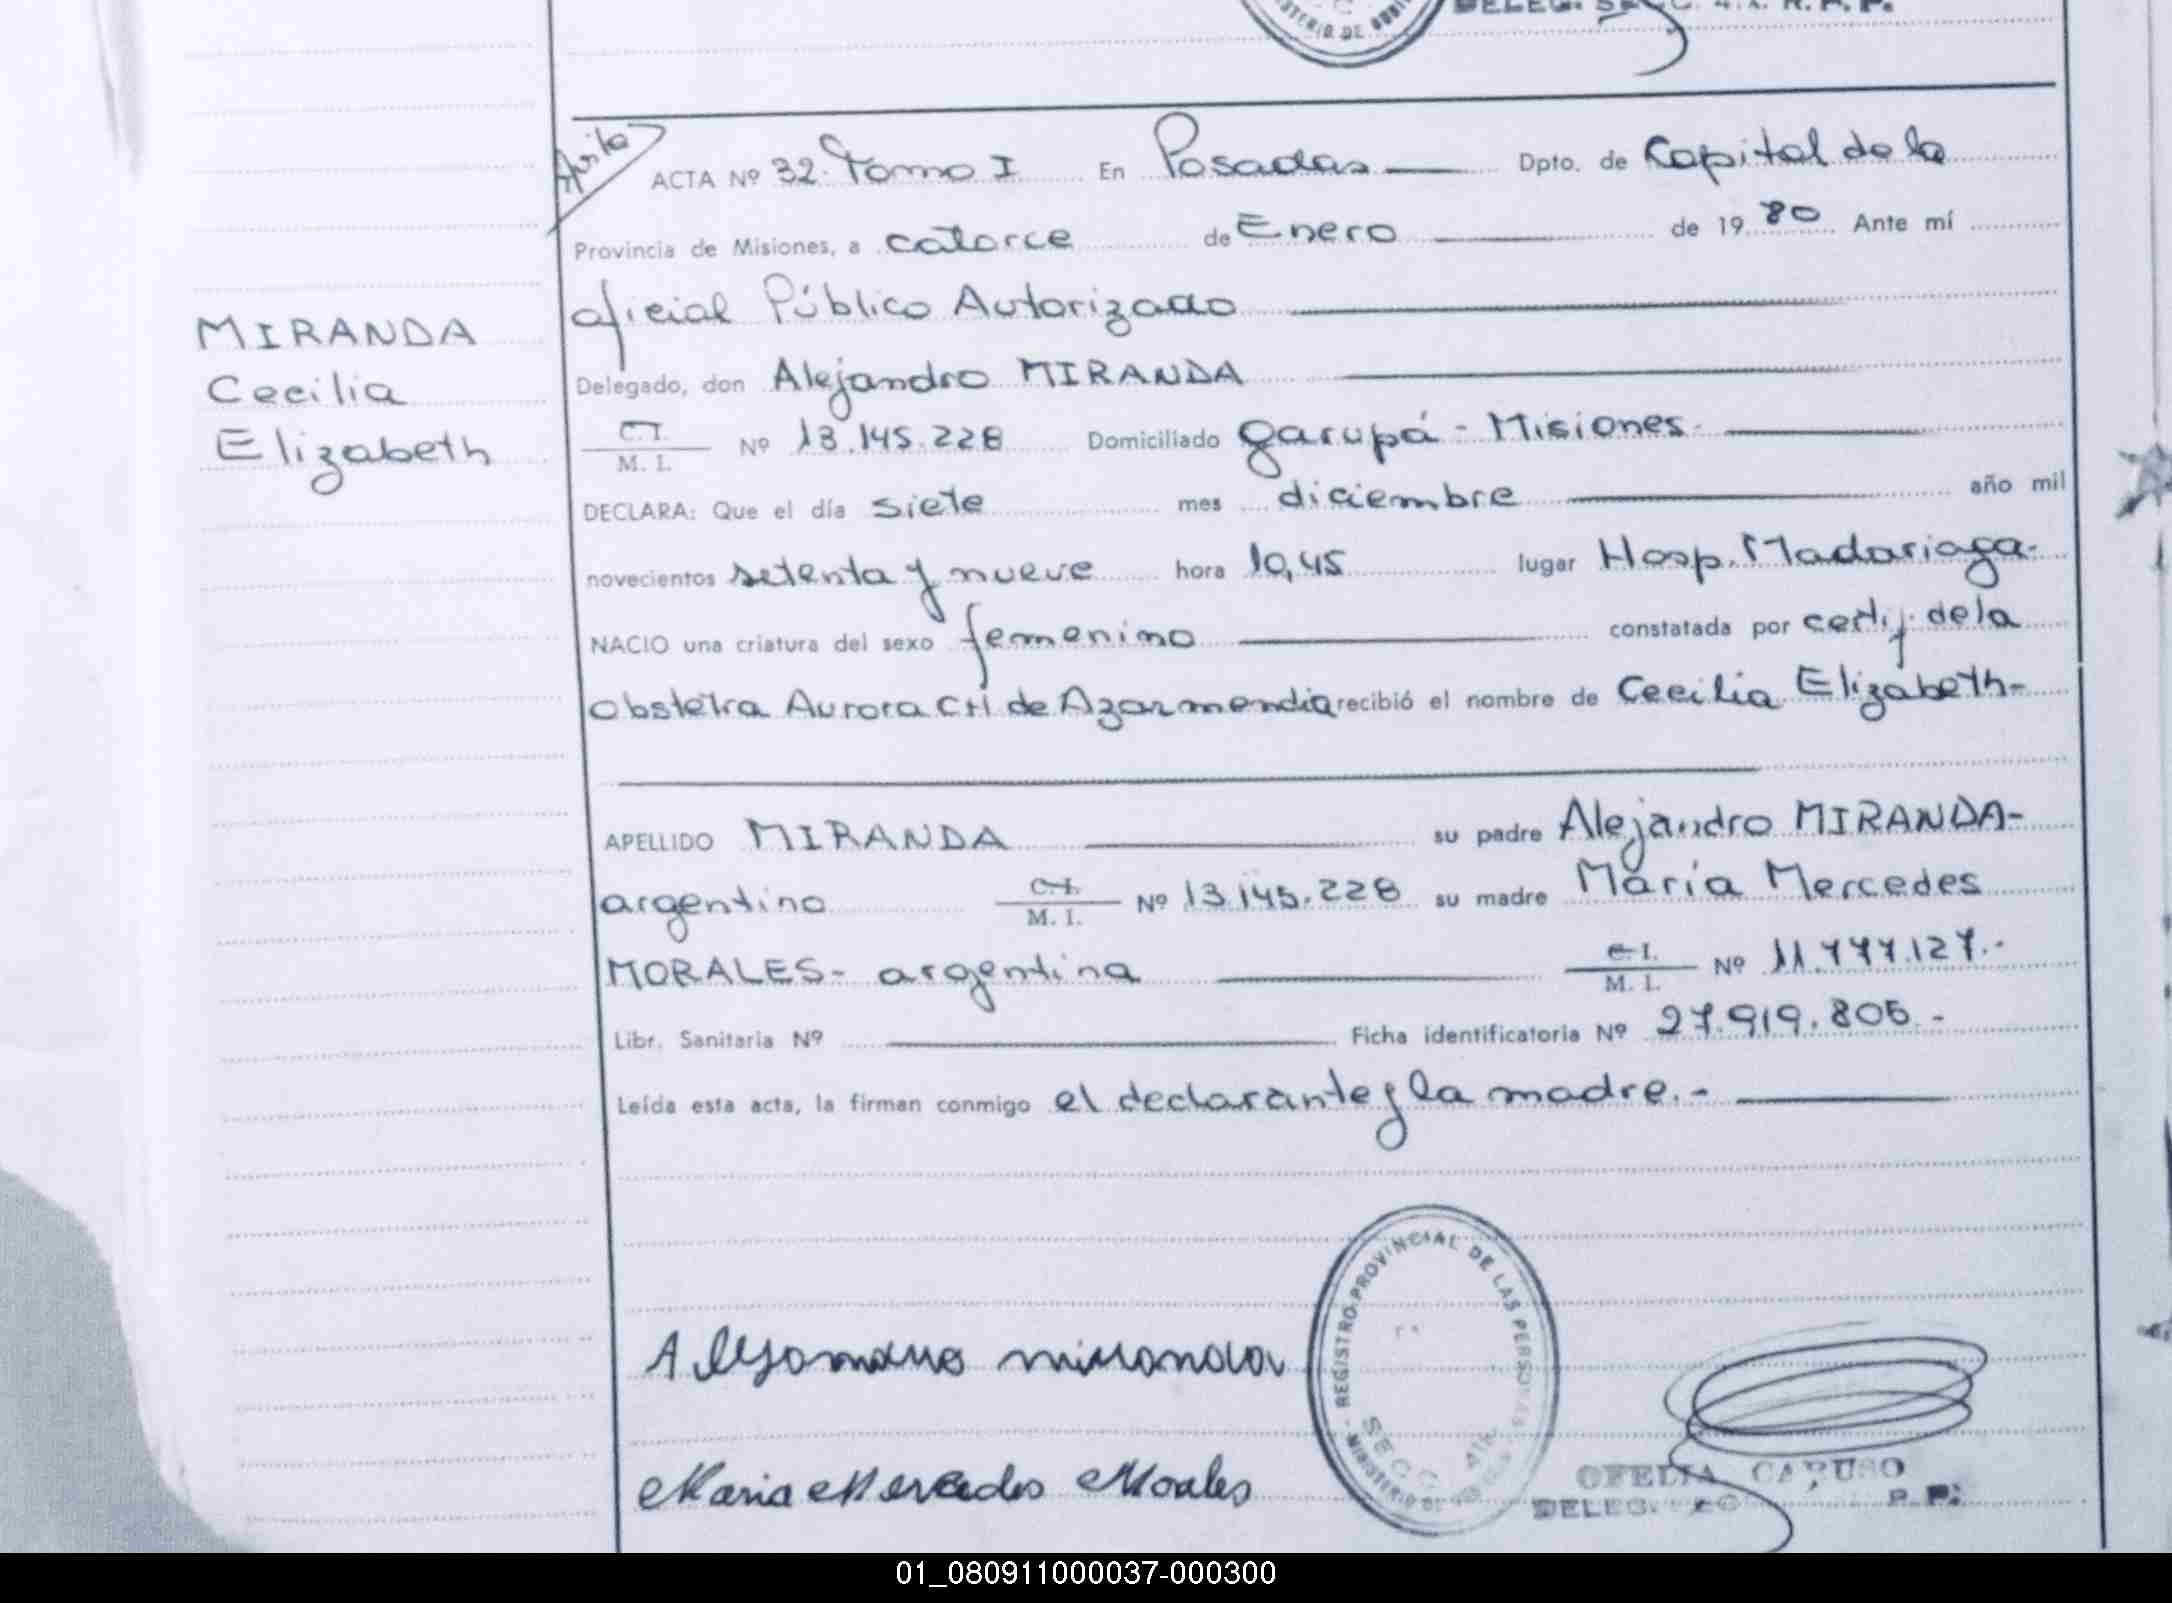 MINISTERIO DE
DELEG. SECC. 4ta. R.P.P.
ACTA Nº 32. Tomo I En Posadas Dpto. de Capital de la
Provincia de Misiones, a catorce de Enero de 19 80 Ante mí
oficial Público Autorizado
MIRANDA
Cecilia
Elizabeth
Delegado, don Alejandro MIRANDA
C.I. M. I. Nº 13.145.228 Domiciliado Garupá - Misiones.
DECLARA: Que el día siete mes diciembre año mil
novecientos setenta y nueve hora 10,45 lugar Hosp. Madariaga-
NACIO una criatura del sexo femenino constatada por certif. de la
obstetra Aurora CH de Azarmendia recibió el nombre de Cecilia Elizabeth-
APELLIDO MIRANDA su padre Alejandro MIRANDA-
argentino C.I. M. I. Nº 13.145.228 su madre María Mercedes
MORALES- argentina C.I. M. I. Nº 11.777.127.-
Libr. Sanitaria Nº Ficha identificatoria Nº 27.919.805.-
Leída esta acta, la firman conmigo el declarante y la madre.-
Alejandro miranda
Maria Mercedes Morales
REGISTRO PROVINCIAL DE LAS PERSONAS
MINISTERIO DE
SECC. 4ta.
OFELIA CARUSO
DELEG. R.P.P.
01_080911000037-000300